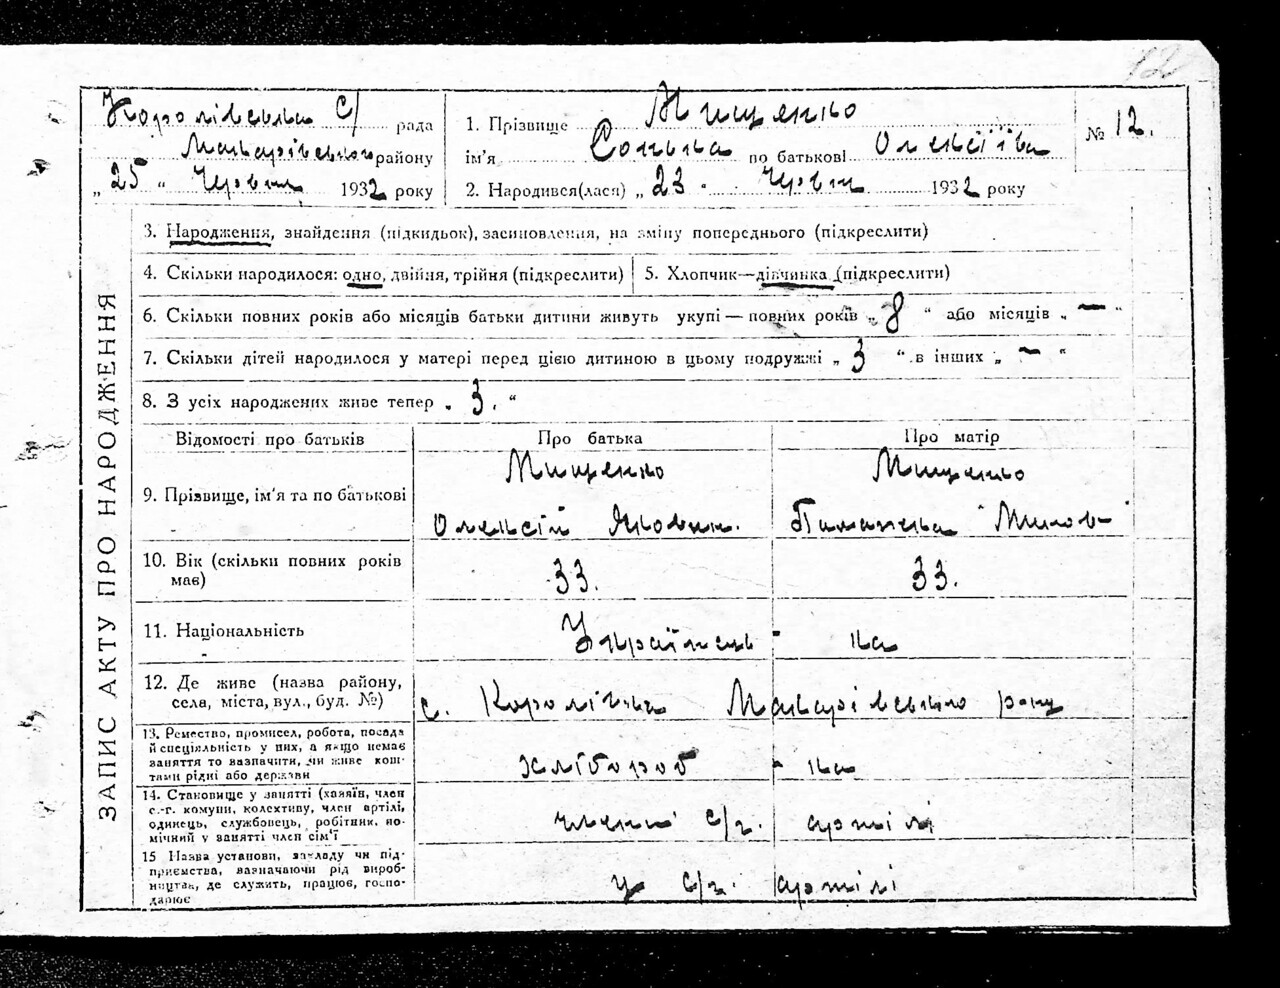 12
Королівська С/ рада
Макарівського району
„ 25 " Червня 1932 року
1. Прізвище Мищенко
ім'я Солька по батькові Олексіївна
2. Народився(лася) „ 23 . Червня 1932 року
№ 12.
ЗАПИС АКТУ ПРО НАРОДЖЕННЯ
3. Народження, знайдення (підкидьок), засиновлення, на зміну попереднього (підкреслити)
4. Скільки народилося: одно, двійня, трійня (підкреслити)
5. Хлопчик—дівчинка (підкреслити)
6. Скільки повних років або місяців батьки дитини живуть укупі — повних років „ 8 " або місяців „ — "
7. Скільки дітей народилося у матері перед цією дитиною в цьому подружжі „ 3 " в інших „ — "
8. З усіх народжених живе тепер „ 3. "
Відомості про батьків
Про батька
Про матір
9. Прізвище, ім'я та по батькові
Мищенко
Олексій Якович.
Мищенко
10. Вік (скільки повних років
має)
33.
33.
11. Національність
Українець - ка
12. Де живе (назва району,
села, міста, вул., буд. №)
с. Королівка Макарівського р-ну
13. Ремество, промисел, робота, посада
й спеціяльність у них, а якщо немає
заняття то вазначити, чи живе кош-
тами рідні або держави
хлібороб - ка
14. Становище у занятті (хазяїн, член
с.-г. комуни, колективу, член артілі,
одинець, службовець, робітник, по-
мічний у занятті член сім'ї
члени с/г. артілі
15 Назва установи, закладу чи під-
приємства, вазначаючи рід вироб-
ництва, де служить, працює, госпо-
дарює
у с/г. артілі